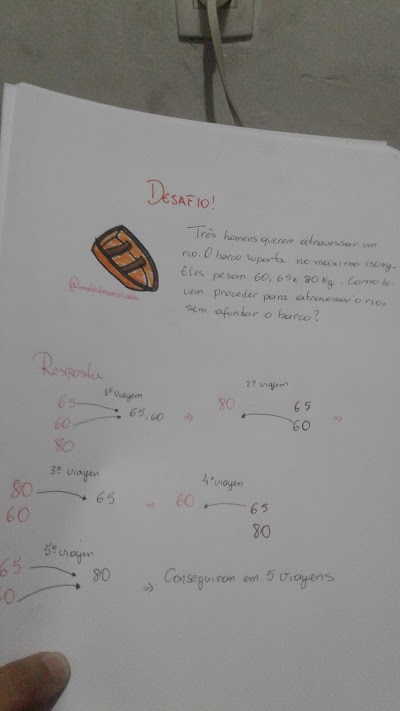 DESAFIO!
Três homens querem atravessar um
rio. O barco suporta no máximo 130kg.
Eles pesam 60, 65 e 80 Kg. Como de-
vem proceder para atravessar o rio,
sem afundar o barco?
Resposta
1ª viagem
65
60
80
65,60
⇒
2ª viagem
80
65
60
⇒
3ª viagem
80
60
65
⇒
4ª viagem
60
65
80
5ª viagem
65
80
⇒ Conseguiram em 5 viagens